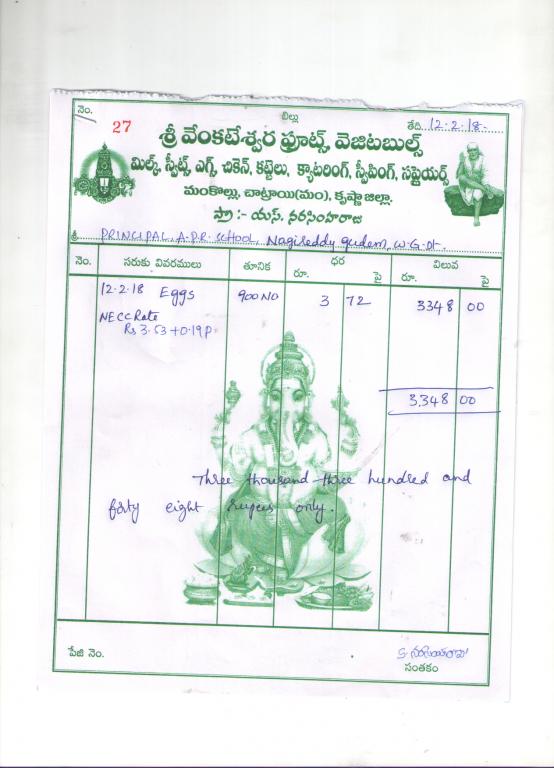 నెం.
27
బిల్లు
తేది. 12.2.18.
శ్రీ వేంకటేశ్వర ఫ్రూట్స్, వెజిటబుల్స్
మిల్క్, స్వీట్స్, ఎగ్స్, చికెన్, కట్టెలు, క్యాటరింగ్, స్వీపింగ్, సప్లైయర్స్
మంకొల్లు, చాట్రాయి(మం), కృష్ణా జిల్లా.
ప్రొ :- యస్. నరసింహరాజు
శ్రీ PRINCIPAL, A.P.R. SCHOOL, Nagireddy gudem, W.G.Dt.
నెం. సరుకు వివరములు తూనిక ధర రూ. పై విలువ రూ. పై
12.2.18 Eggs 900 NO 3 72 3348 00
NECC Rate
Rs 3.53+0.19P.
3348 00
Three thousand three hundred and
forty eight rupees only.
పేజి నెం.
సంతకం